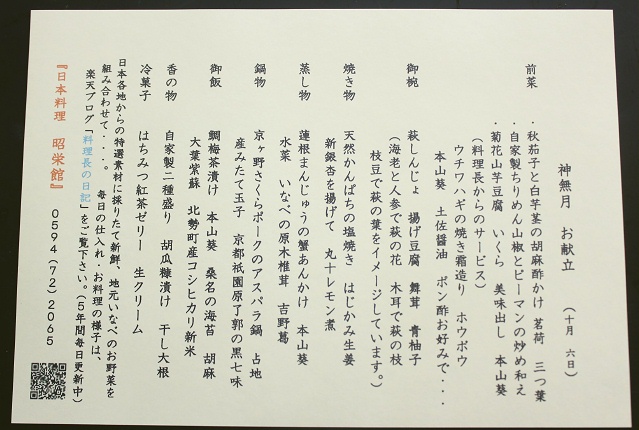 神無月　お献立　（十月　六日）
前菜　・秋茄子と白芋茎の胡麻酢かけ　茗荷　三つ葉
・自家製ちりめん山椒とピーマンの炒め和え
・菊花山芋豆腐　いくら　美味出し　本山葵
（料理長からのサービス）
ウチワハギの焼き霜造り　ホウボウ
本山葵　土佐醤油　ポン酢お好みで・・・
御椀　萩しんじょ　揚げ豆腐　舞茸　青柚子
（海老と人参で萩の花　木耳で萩の枝
枝豆で萩の葉をイメージしています。）
焼き物　天然かんぱちの塩焼き　はじかみ生姜
新銀杏を揚げて　丸十レモン煮
蒸し物　蓮根まんじゅうの蟹あんかけ　本山葵
水菜　いなべの原木椎茸　吉野葛
鍋物　京ヶ野さくらポークのアスパラ鍋　占地
産みたて玉子　京都祇園原了郭の黒七味
御飯　鯛梅茶漬け　本山葵　桑名の海苔　胡麻
大葉紫蘇　北勢町産コシヒカリ新米
香の物　自家製二種盛り　胡瓜糠漬け　干し大根
冷菓子　はちみつ紅茶ゼリー　生クリーム
日本各地からの特選素材に採りたて新鮮、地元いなべのお野菜を
組み合わせて・・・。　毎日の仕入れ、お料理の様子は、
楽天ブログ「料理長の日記」をご覧下さい。（５年間毎日更新中）
『日本料理　昭栄館』　０５９４（７２）２０６５